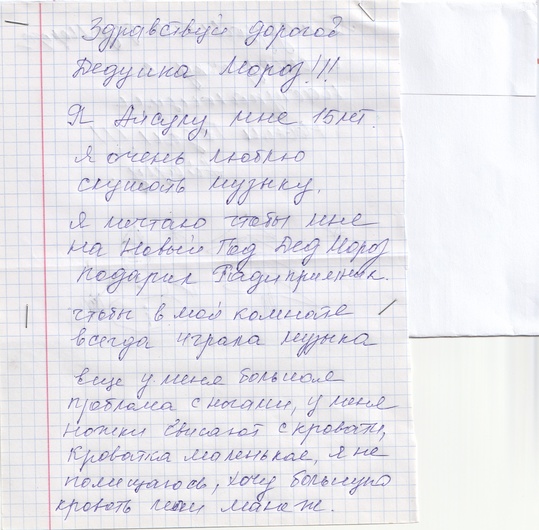 Здравствуй дорогой
Дедушка Мороз!!!
Я Айсулу, мне 15 лет.
Я очень люблю
слушать музыку.
Я мечтаю чтобы мне
на Новый Год Дед Мороз
подарил Радиприемник.
чтобы в моей комноте
всегда играла музыка
еще у меня большая
проблома с ногами, у меня
ножки свисают с кровати,
кроватка маленькае, я не
помещаюсь, хочу большую
кровоть или манеж.